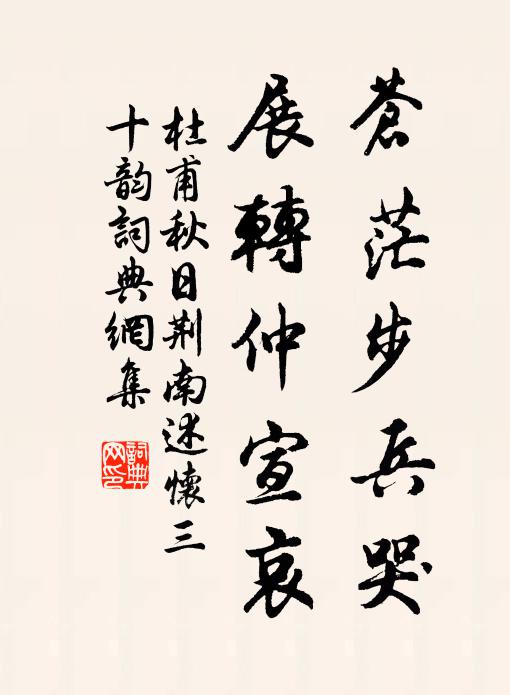 蒼茫步兵哭
展轉仲宣哀
杜甫秋日荆南述懷三
十韵詞典網集
詞典
网印